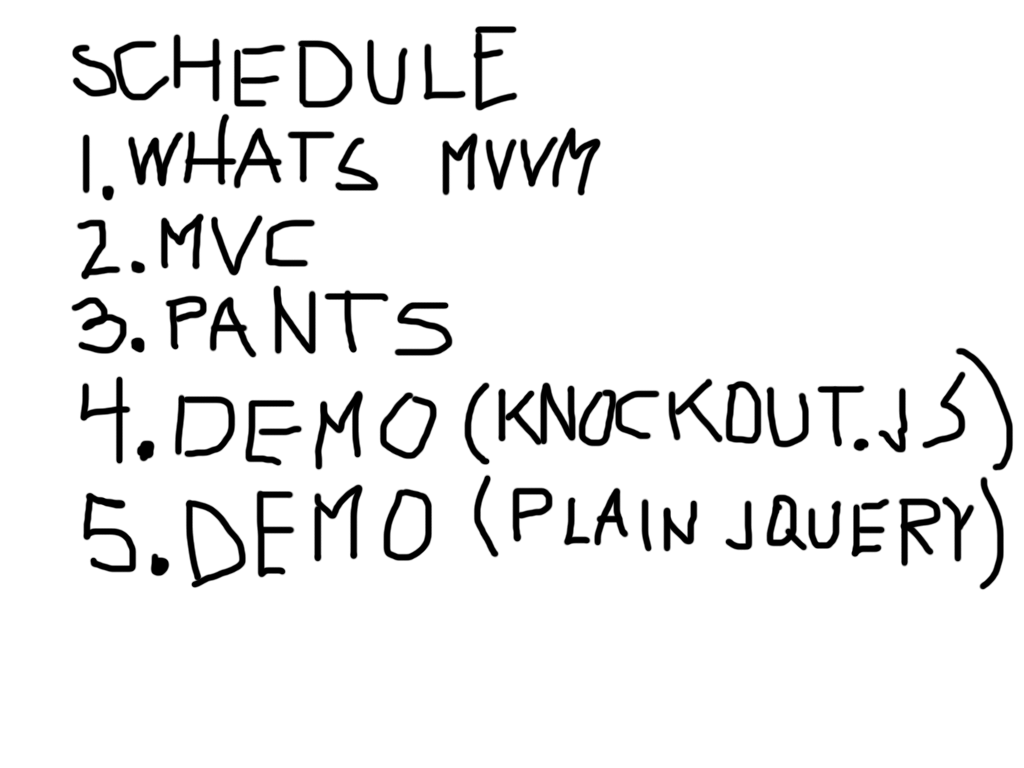 SCHEDULE
1. WHATS MVVM
2. MVC
3. PANTS
4. DEMO (KNOCKOUT.JS)
5. DEMO (PLAIN JQUERY)